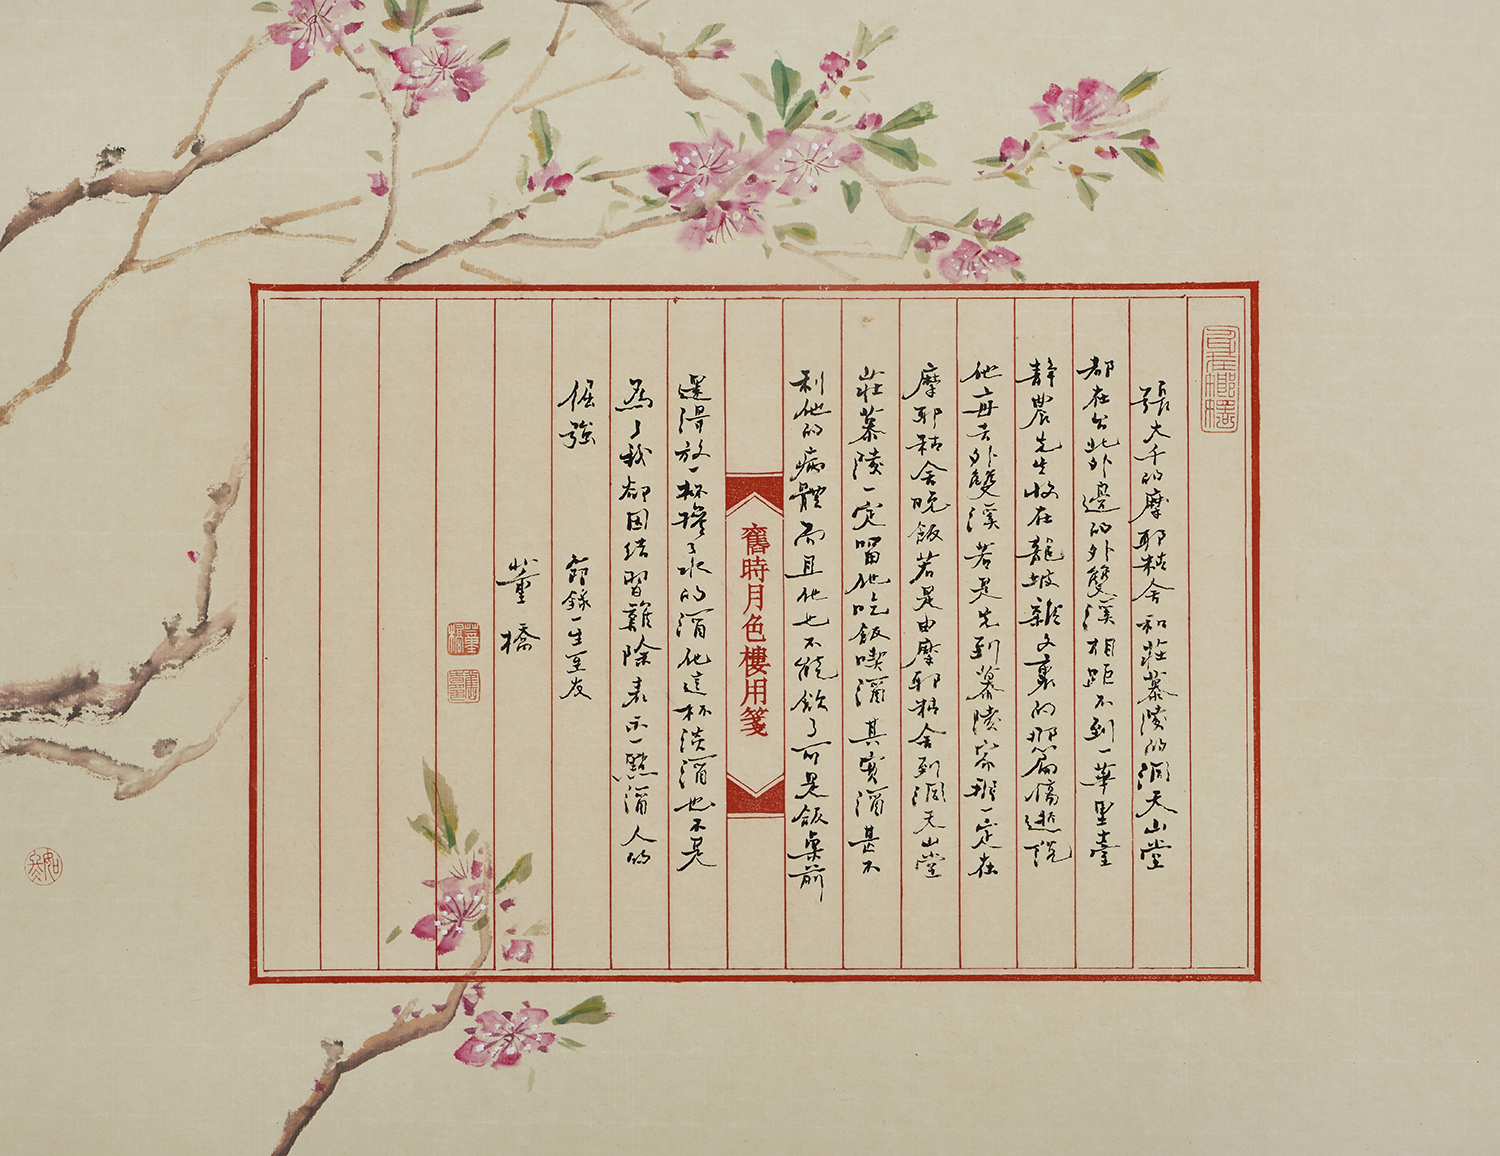 張大千的摩耶精舍和莊慕陵的洞天山堂
都在台北外邊的外雙溪相距不到一華里臺
靜農先生收在龍坡雜文裏的那篇傷逝說
他每去外雙溪若是先到慕陵家班一定在
摩耶精舍晚飯若是由摩耶精舍到洞天山堂
莊慕陵一定留他吃飯喫酒其實酒甚不
利他的病體而且他也不能飲了可是飯桌前
舊時月色樓用箋
還得放一杯摻了水的酒他這杯淡酒也不是
為了我卻因結習難除表示一點酒人的
倔強
節錄一生至友
董橋
董橋